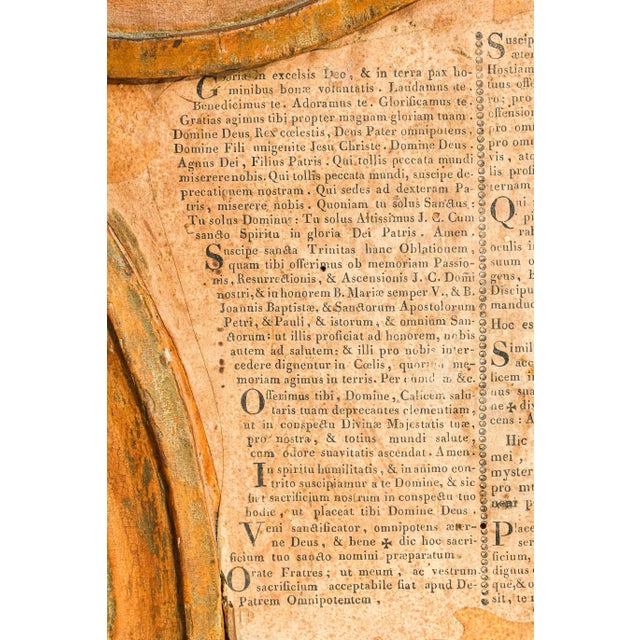 Gloria in excelsis Deo, & in terra pax ho-
minibus bonæ voluntatis. Laudamus te.
Benedicimus te. Adoramus te. Glorificamus te.
Gratias agimus tibi propter magnam gloriam tuam
Domine Deus Rex cœlestis, Deus Pater omnipotens
Domine Fili unigenite Jesu Christe. Domine Deus
Agnus Dei, Filius Patris: Qui tollis peccata mundi
miserere nobis. Qui tollis peccata mundi, suscipe de-
precationem nostram. Qui sedes ad dexteram Pa-
tris, miserere nobis. Quoniam tu solus Sanctus:
Tu solus Dominus: Tu solus Altissimus J. C. Cum
sancto Spiritu in gloria Dei Patris. Amen.
Suscipe sancta Trinitas hanc Oblationem,
quam tibi offerimus ob memoriam Passio-
nis, Resurrectionis, & Ascensionis J. C. Domi
nostri, & in honorem B. Mariæ semper V., & B.
Joannis Baptistæ, & Sanctorum Apostolorum
Petri, & Pauli, & istorum, & omnium San-
ctorum: ut illis proficiat ad honorem, nobis
autem ad salutem; & illi pro nobis inter-
cedere dignentur in Cœlis, quorum me-
moriam agimus in terris. Per eumdem &c.
Offerimus tibi, Domine, Calicem salu-
taris tuam deprecantes clementiam,
ut in conspectu Divinæ Majestatis tuæ,
pro nostra, & totius mundi salute,
cum odore suavitatis ascendat. Amen.
In spiritu humilitatis, & in animo con-
trito suscipiamur a te Domine, & sic
fiat sacrificium nostrum in conspectu tuo
hodie, ut placeat tibi Domine Deus.
Veni sanctificator, omnipotens æter-
ne Deus, & bene ✠ dic hoc sacri-
ficium tuo sancto nomini præparatum.
Orate Fratres; ut meum, ac vestrum
sacrificium acceptabile fiat apud De-
Patrem Omnipotentem,
Suscip
æter
Hostiam
tuus offer
ro; pro
offension
pro omni
pro omn
vis, ato
mihi, &
ternam
Qui p
in
oculis in
suum o
gens, b
Discipu
manduc
Hoc es
Simil
acc
licem in
item
ne ✠ di
cens: A
Hic
mei,
myster
pro mu
Place
ser
sificium,
dignus o
que, & o
sit, te m